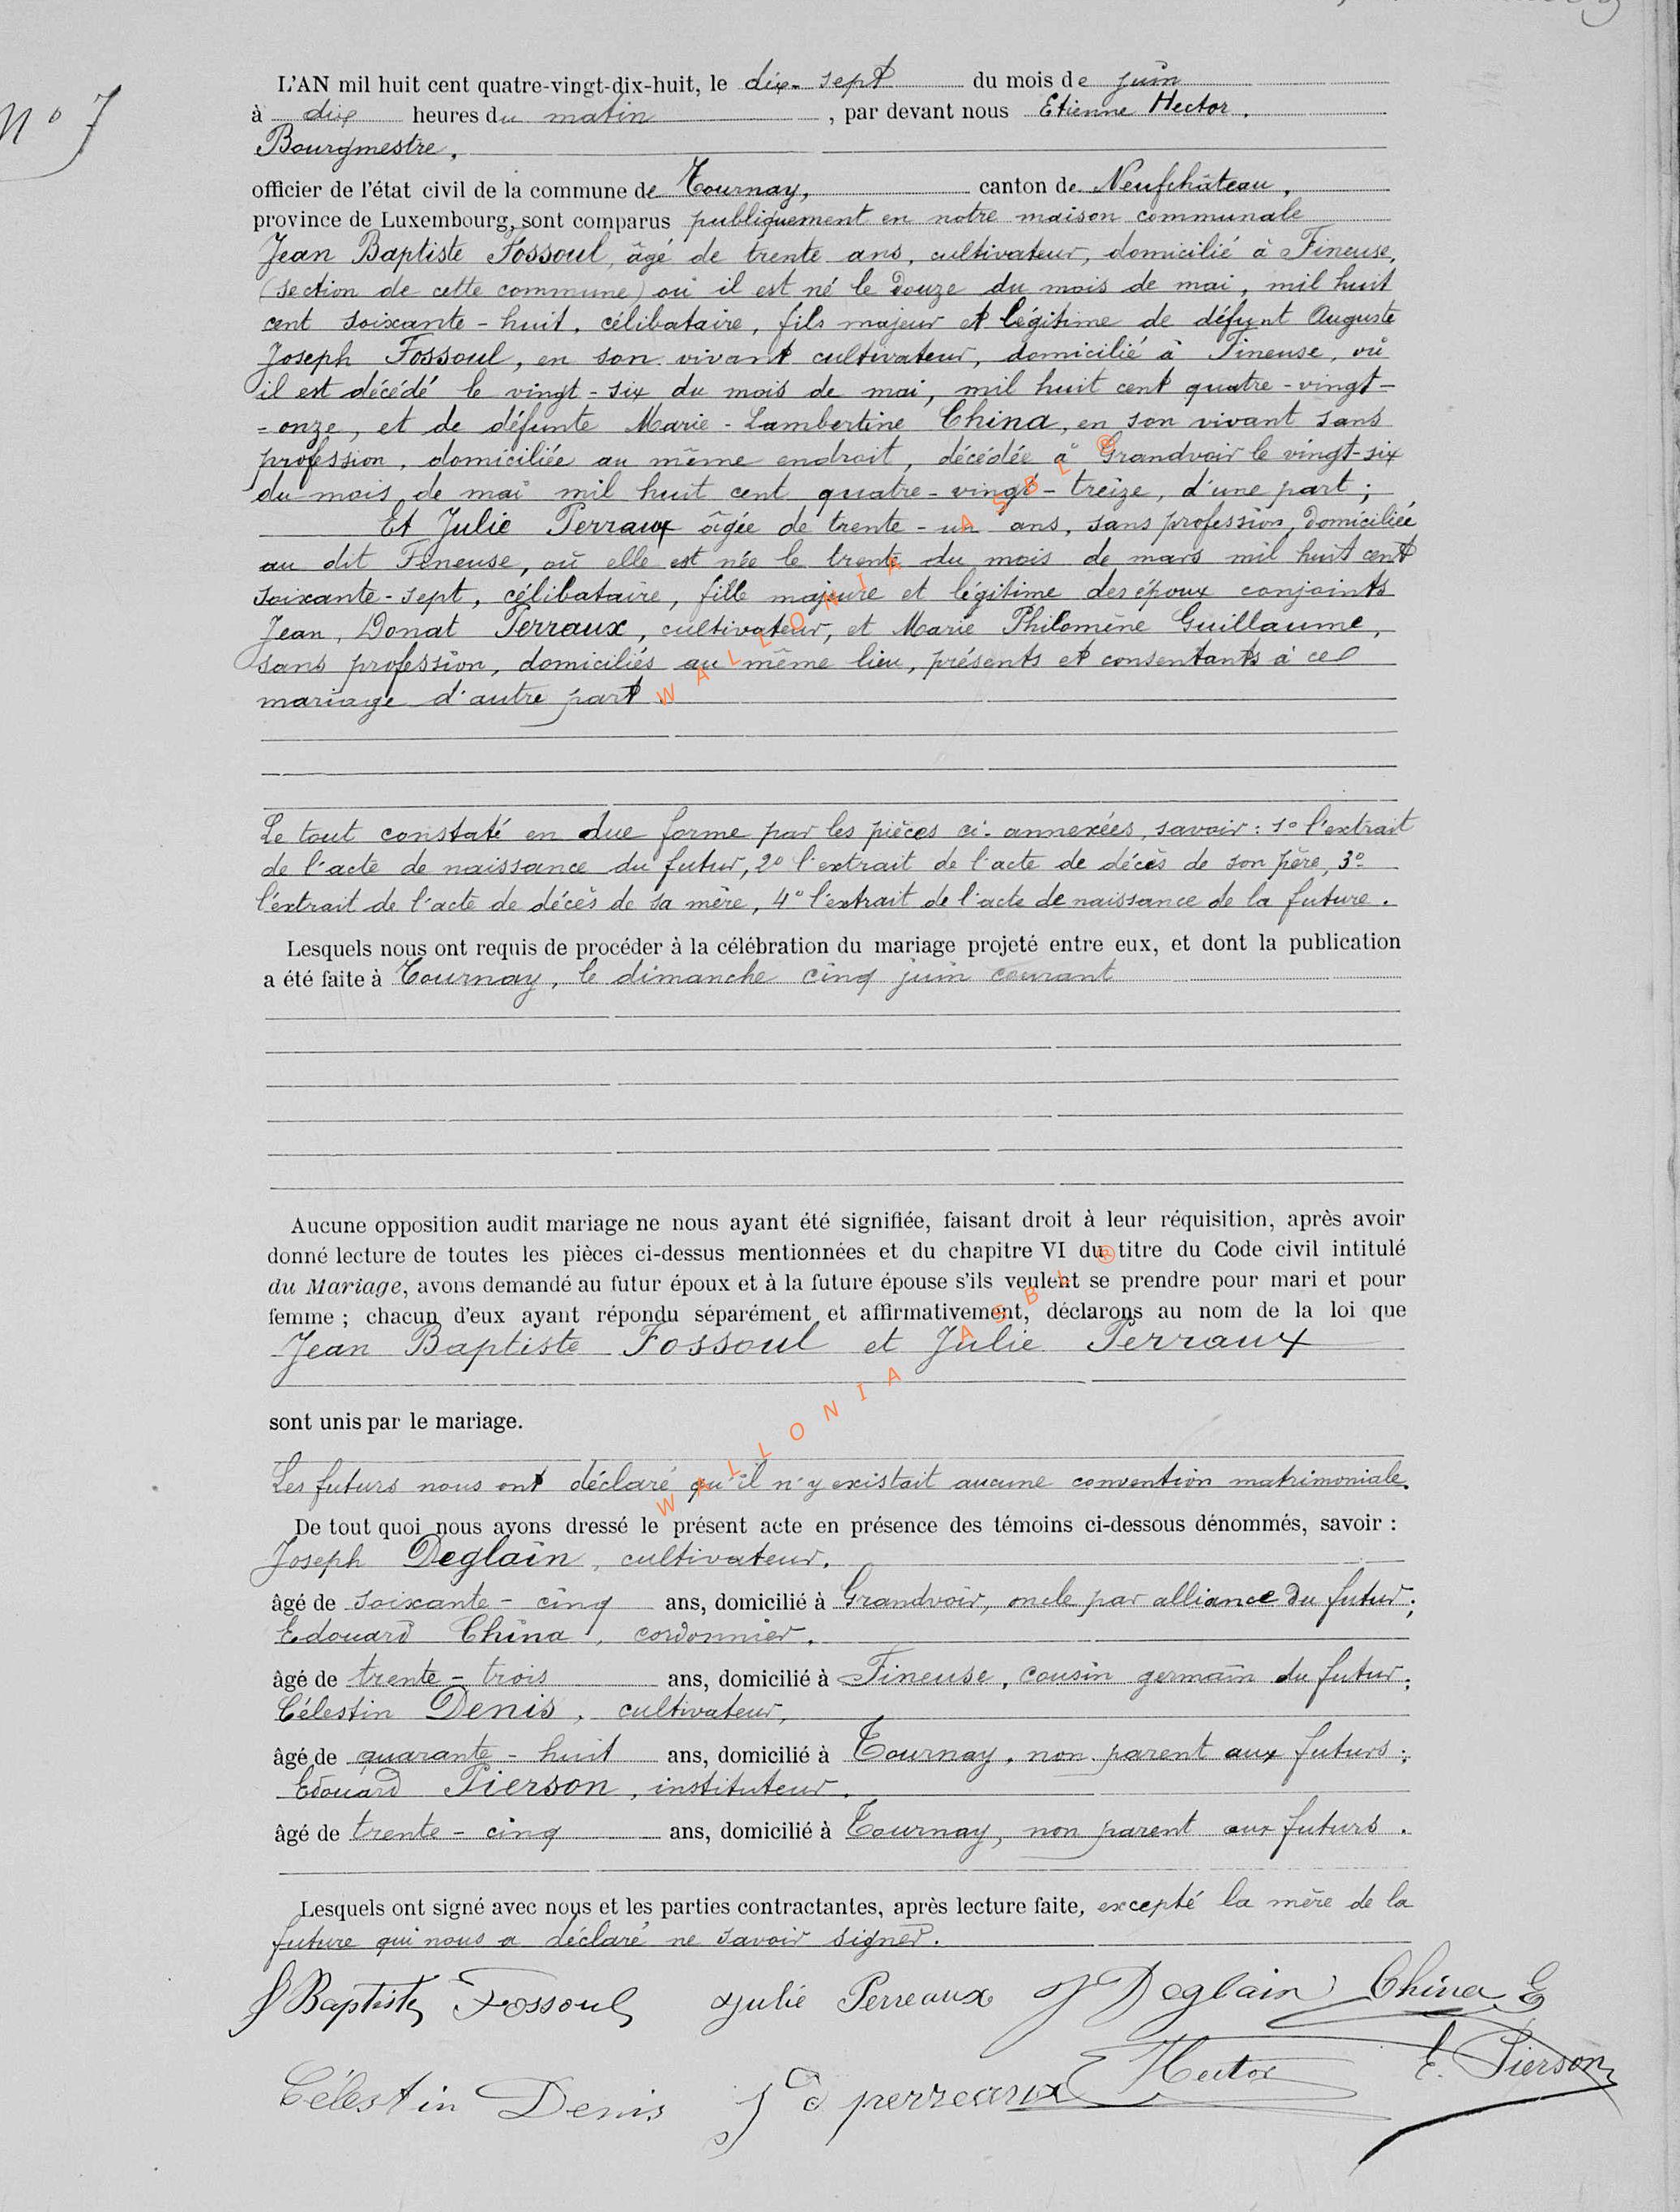 N° 7
L'AN mil huit cent quatre-vingt-dix-huit, le dix-sept du mois de juin
à dix heures du matin, par devant nous Etienne Hector,
Bourgmestre,
officier de l'état civil de la commune de Tournay, canton de Neufchâteau,
province de Luxembourg, sont comparus publiquement en notre maison communale
Jean Baptiste Fossoul, âgé de trente ans, cultivateur, domicilié à Fineuse,
(section de cette commune) où il est né le douze du mois de mai, mil huit
cent soixante-huit, célibataire, fils majeur et légitime de défunt Auguste
Joseph Fossoul, en son vivant cultivateur, domicilié à Fineuse, où
il est décédé le vingt-six du mois de mai, mil huit cent quatre-vingt-
-onze, et de défunte Marie-Lambertine China, en son vivant sans
profession, domiciliée au même endroit, décédée à Grandvoir le vingt-six
du mois de mai mil huit cent quatre-vingt-treize, d'une part;
Et Julie Perraux âgée de trente-un ans, sans profession, domiciliée
au dit Fineuse, où elle est née le trente du mois de mars mil huit cent
soixante-sept, célibataire, fille majeure et légitime des époux conjoints
Jean, Donat Perraux, cultivateur, et Marie Philomène Guillaume,
sans profession, domiciliés au même lieu, présents et consentants à ce
mariage d'autre part.
Le tout constaté en due forme par les pièces ci-annexées, savoir: 1° l'extrait
de l'acte de naissance du futur, 2° l'extrait de l'acte de décès de son père, 3°
l'extrait de l'acte de décès de sa mère, 4° l'extrait de l'acte de naissance de la future.
Lesquels nous ont requis de procéder à la célébration du mariage projeté entre eux, et dont la publication
a été faite à Tournay, le dimanche cinq juin courant
Aucune opposition audit mariage ne nous ayant été signifiée, faisant droit à leur réquisition, après avoir
donné lecture de toutes les pièces ci-dessus mentionnées et du chapitre VI du titre du Code civil intitulé
du Mariage, avons demandé au futur époux et à la future épouse s'ils veulent se prendre pour mari et pour
femme ; chacun d'eux ayant répondu séparément et affirmativement, déclarons au nom de la loi que
Jean Baptiste Fossoul et Julie Perraux
sont unis par le mariage.
Les futurs nous ont déclaré qu'il n'y existait aucune convention matrimoniale.
De tout quoi nous avons dressé le présent acte en présence des témoins ci-dessous dénommés, savoir :
Joseph Deglain, cultivateur.
âgé de soixante-cinq ans, domicilié à Grandvoir, oncle par alliance du futur;
Edouard China, cordonnier.
âgé de trente-trois ans, domicilié à Fineuse, cousin germain du futur;
Célestin Denis, cultivateur,
âgé de quarante-huit ans, domicilié à Tournay, non parent aux futurs;
Edouard Pierson, instituteur.
âgé de trente-cinq ans, domicilié à Tournay, non parent aux futurs.
Lesquels ont signé avec nous et les parties contractantes, après lecture faite, excepté la mère de la
future qui nous a déclaré ne savoir signer.
J Baptiste Fossoul Julie Perreaux J Deglain China E
Célestin Denis J d perreaux Hector E. Pierson
WALLONIA ASBL ®
WALLONIA ASBL ®